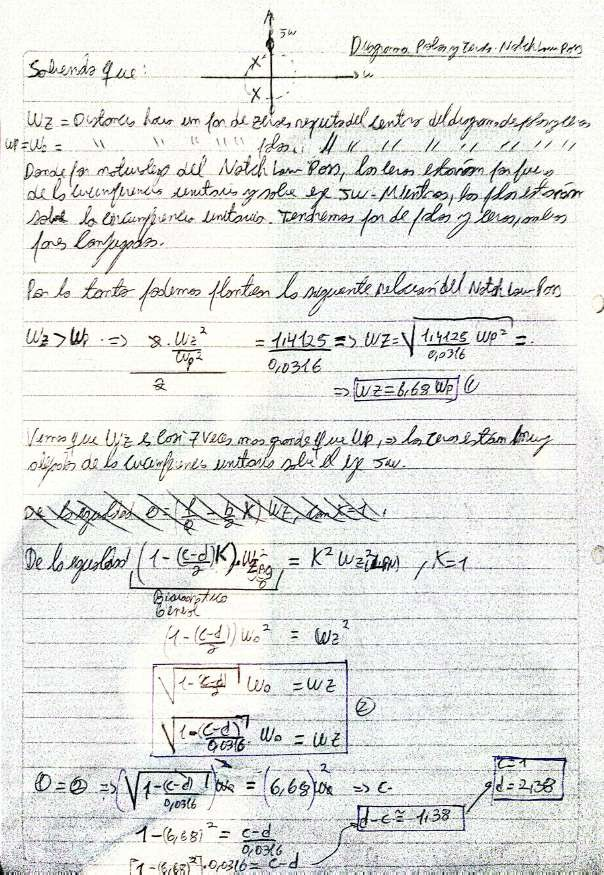 Diagrama Polos y Ceros. Notch Low Pass
jw
Sabiendo que:
w
Wz = Distancia hacia un par de zeros respecto del centro del diagrama de polos y ceros
wp = Wo = " " " " " polos " " " " " " "
Donde por naturaleza del Notch Low Pass, los ceros estarían por fuera
de la circunferencia unitaria y sobre eje jw. Mientras, los polos estarían
sobre la circunferencia unitaria. Tendremos par de polos y ceros, ambos
pares conjugados.
Por lo tanto podemos plantear la siguiente relación del Notch Low Pass
Wz > Wp => 2 . Wz² / Wp² / 2 = 1,4125 / 0,0316 => Wz = √(1,4125 / 0,0316 Wp²) =
=> Wz = 6,68 Wp ①
Vemos que Wz es casi 7 veces mas grande que Wp, => los ceros están muy
de la circunferencia unitaria sobre el eje jw.
De la igualdad (1 - (c-d)/2 K) . = K² Wz² (LPN) , K=1
Bicuadrático
General
(1 - (c-d)/2) Wo² = Wz²
√(1 - (c-d)/2) Wo = Wz
②
√(1 - (c-d)/0,0316) Wo = Wz
① = ② => (√(1 - (c-d)/0,0316) Wo)² = (6,68)² Wo => c-
c = 1
d = 2,38
1 - (6,68)² = c-d / 0,0316
d - c ≅ 1,38
[1 - (6,68)²] . 0,0316 = c-d